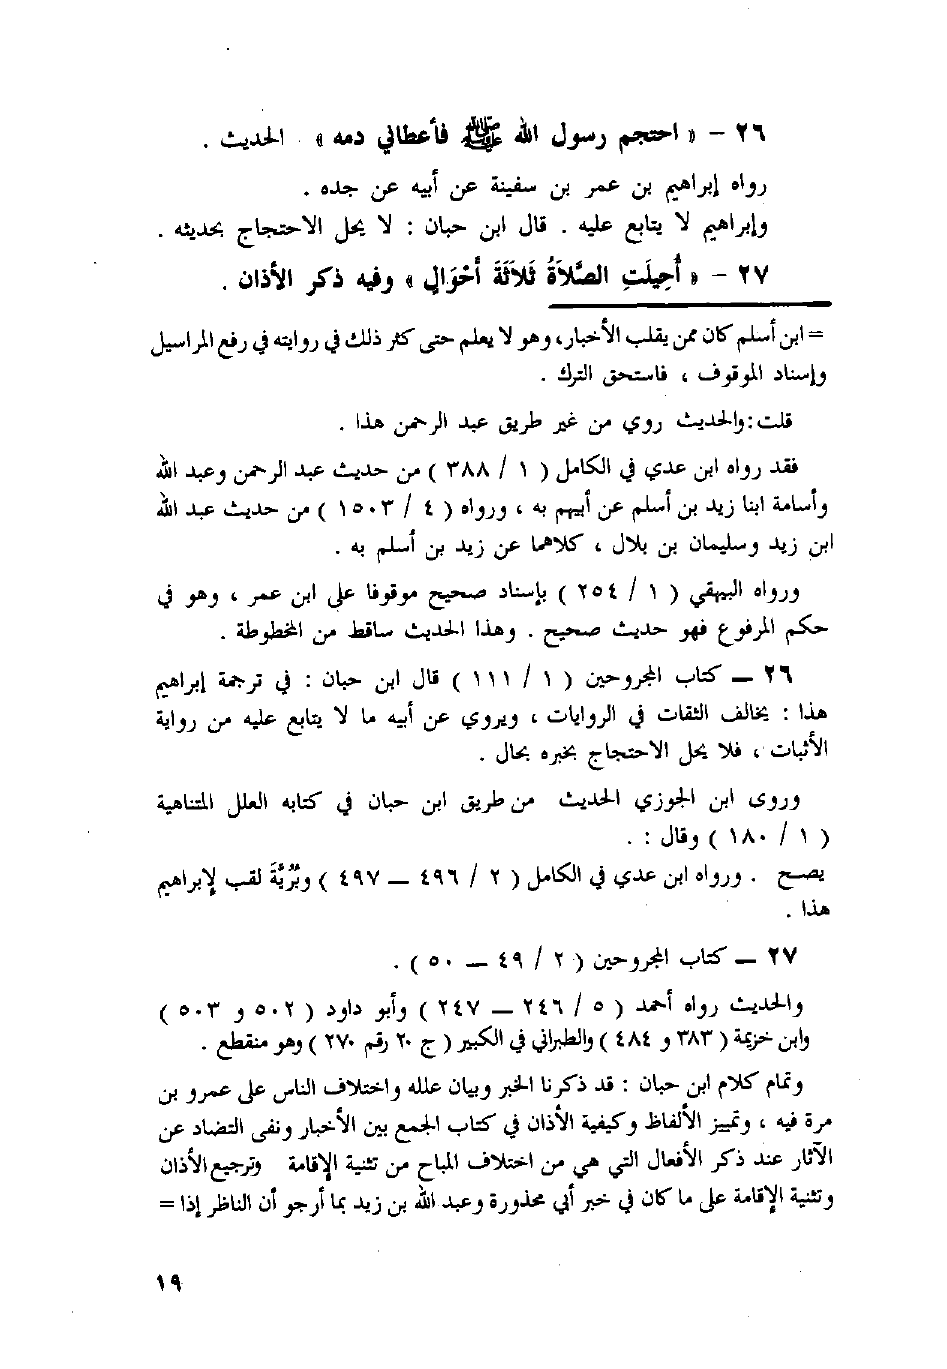 ٢٦ – « احتجم رسول الله ﷺ فأعطاني دمه » الحديث .
رواه إبراهيم بن عمر بن سفينة عن أبيه عن جده .
وإبراهيم لا يتابع عليه . قال ابن حبان : لا يحل الاحتجاج بحديثه .
٢٧ – « أُحِيلَتِ الصَّلَاةُ ثَلَاثَةَ أَحْوَالٍ » وفيه ذكر الأذان .
= ابن أسلم كان ممن يقلب الأخبار، وهو لا يعلم حتى كثر ذلك في روايته في رفع المراسيل
وإسناد الموقوف ، فاستحق الترك .
قلت : والحديث روي من غير طريق عبد الرحمن هذا .
فقد رواه ابن عدي في الكامل ( ١ / ٣٨٨ ) من حديث عبد الرحمن وعبد الله
وأسامة ابنا زيد بن أسلم عن أبيهم به ، ورواه ( ٤ / ١٥٠٣ ) من حديث عبد الله
ابن زيد وسليمان بن بلال ، كلاهما عن زيد بن أسلم به .
ورواه البيهقي ( ١ / ٢٥٤ ) بإسناد صحيح موقوفا على ابن عمر ، وهو في
حكم المرفوع فهو حديث صحيح . وهذا الحديث ساقط من المخطوطة .
٢٦ ــ كتاب المجروحين ( ١ / ١١١ ) قال ابن حبان : في ترجمة إبراهيم
هذا : يخالف الثقات في الروايات ، ويروي عن أبيه ما لا يتابع عليه من رواية
الأثبات ، فلا يحل الاحتجاج بخبره بحال .
وروى ابن الجوزي الحديث من طريق ابن حبان في كتابه العلل المتناهية
( ١ / ١٨٠ ) وقال : .
يصح . ورواه ابن عدي في الكامل ( ٢ / ٤٩٦ ــ ٤٩٧ ) وبُرَيْهَ لقب لإبراهيم
هذا .
٢٧ ــ كتاب المجروحين ( ٢ / ٤٩ ــ ٥٠ ) .
والحديث رواه أحمد ( ٥ / ٢٤٦ ــ ٢٤٧ ) وأبو داود ( ٥٠٢ و ٥٠٣ )
وابن خزيمة ( ٣٨٣ و ٤٨٤ ) والطبراني في الكبير ( ج ٢٠ رقم ٢٧٠ ) وهو منقطع .
وتمام كلام ابن حبان : قد ذكرنا الخبر وبيان علله واختلاف الناس على عمرو بن
مرة فيه ، وتمييز الألفاظ وكيفية الأذان في كتاب الجمع بين الأخبار ونفى التضاد عن
الآثار عند ذكر الأفعال التي هي من اختلاف المباح من تثنية الإقامة وترجيع الأذان
وتثنية الإقامة على ما كان في خبر أبي محذورة وعبد الله بن زيد بما أرجو أن الناظر إذا =
١٩